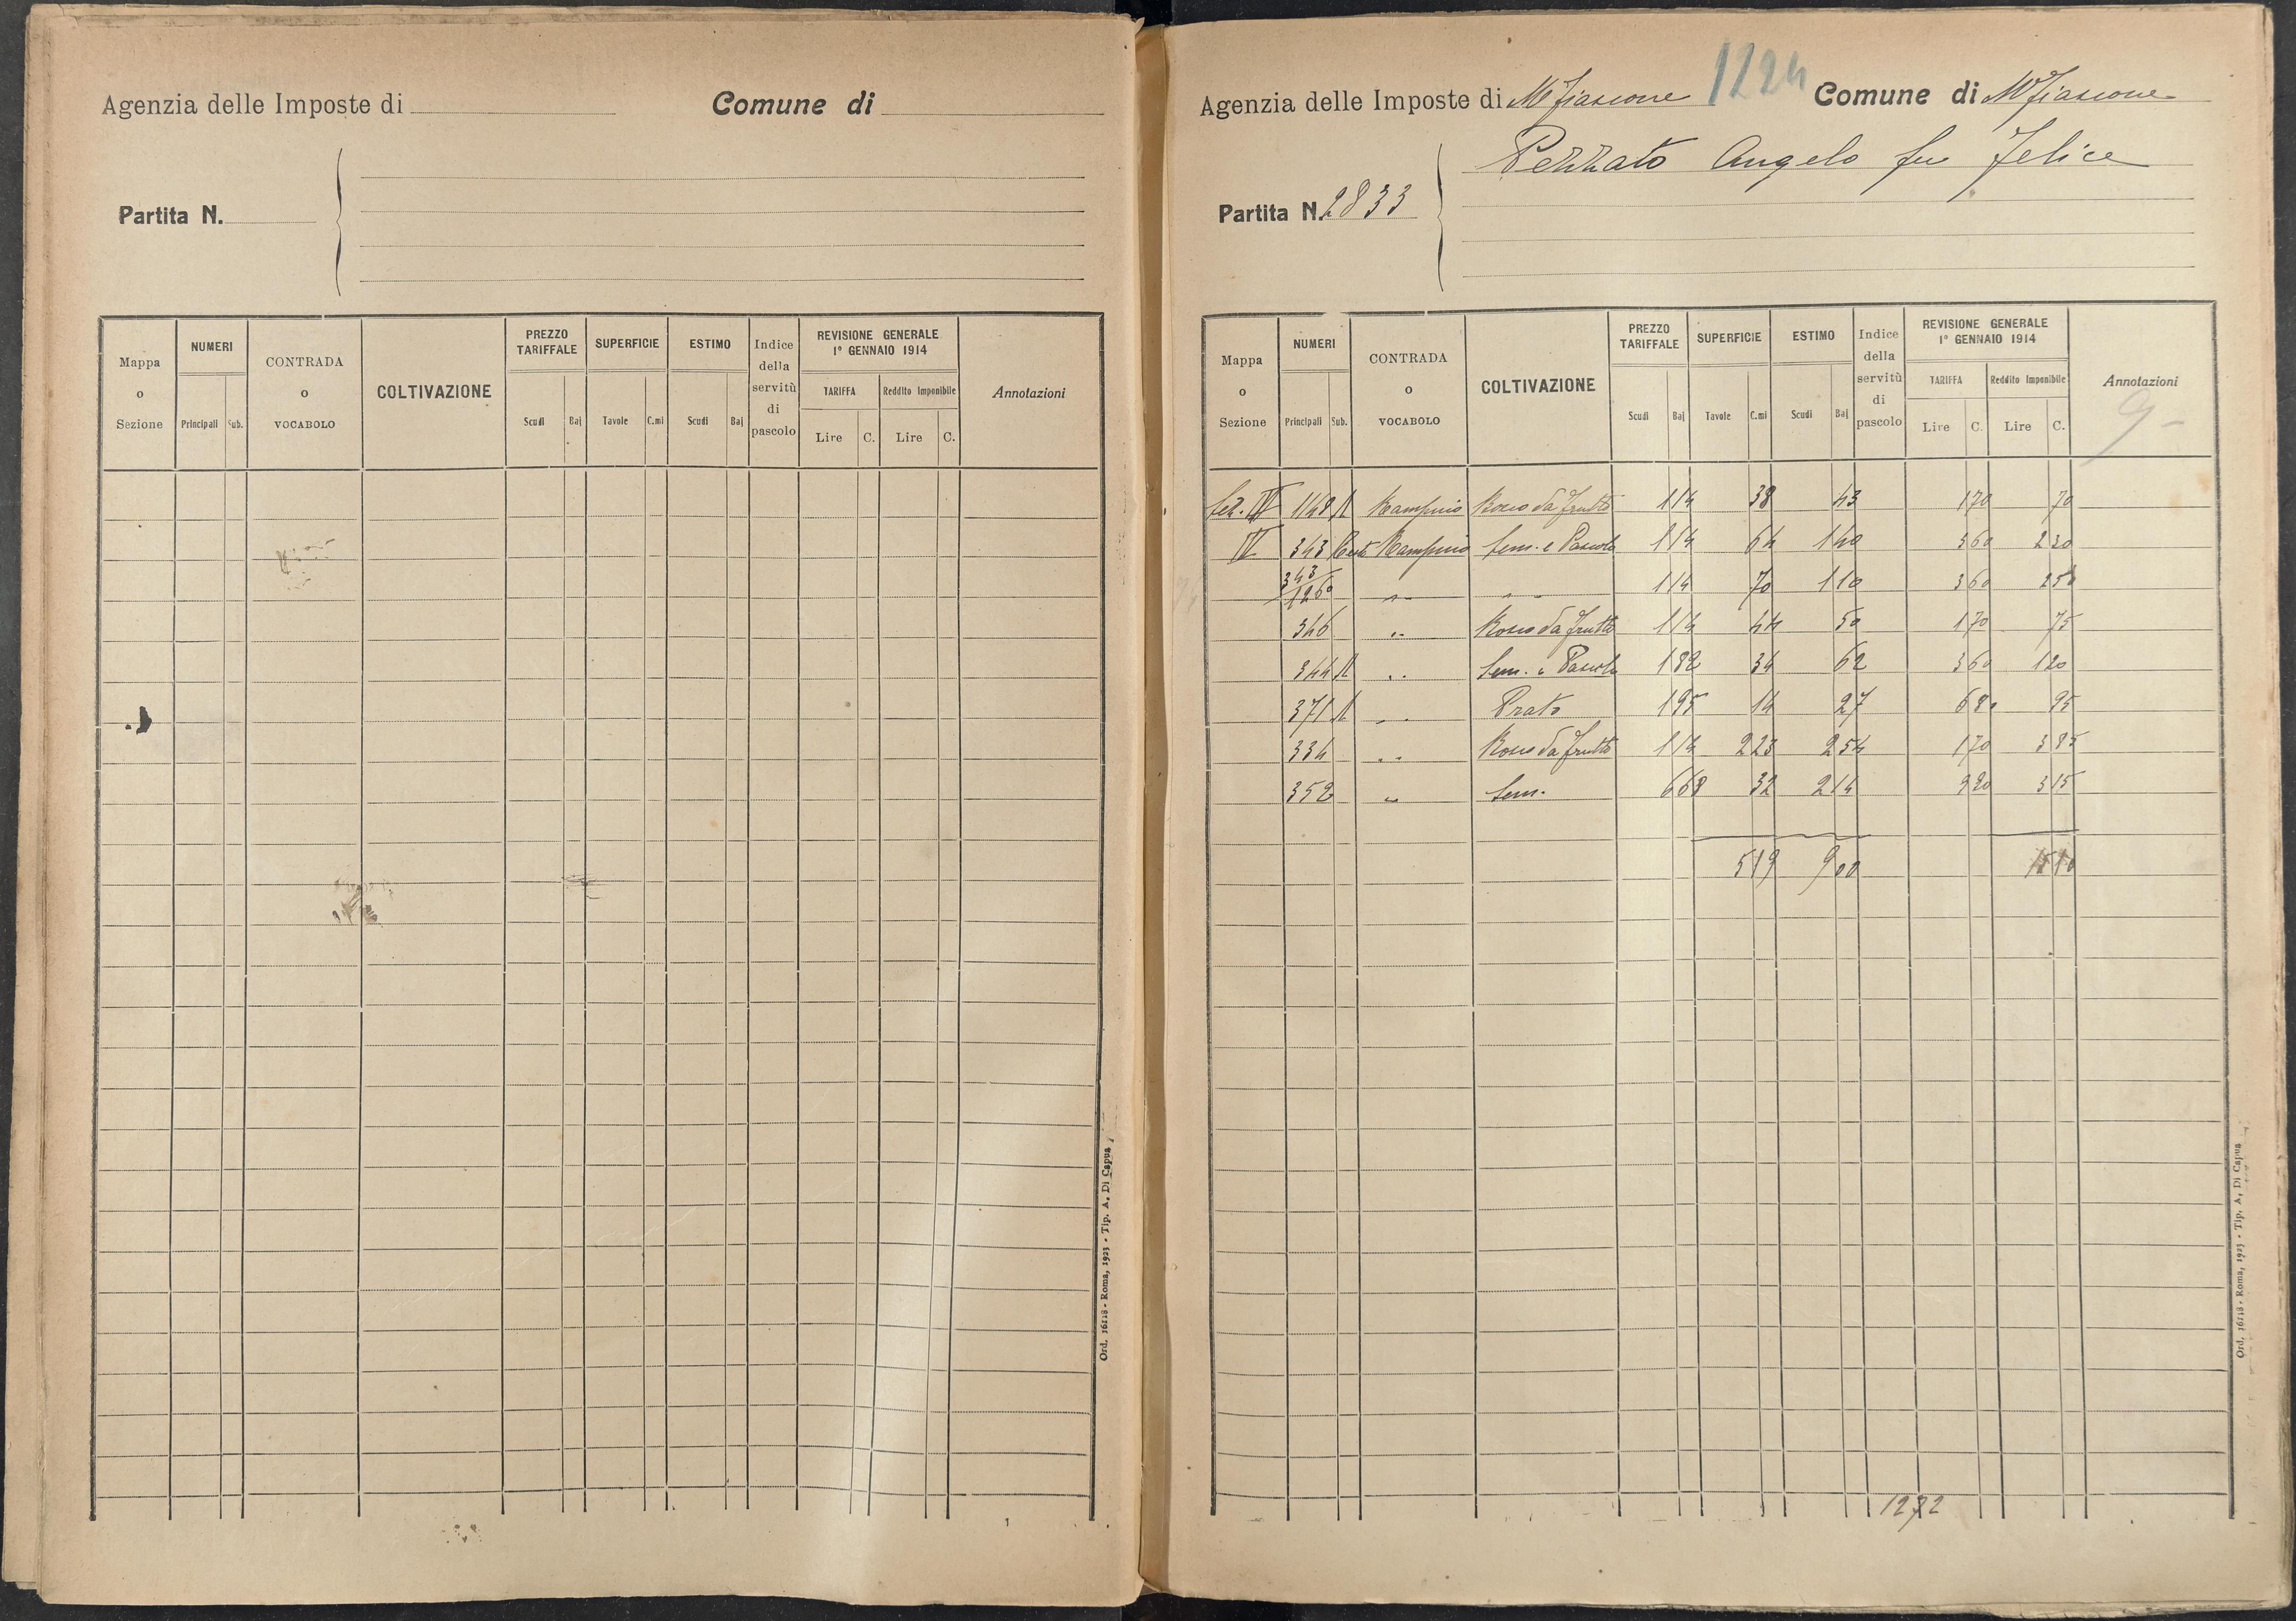 Agenzia delle Imposte di
Comune di
Partita N.
Mappa o Sezione
NUMERI
Principali Sub.
CONTRADA o VOCABOLO
COLTIVAZIONE
PREZZO TARIFFALE
Scudi Baj
SUPERFICIE
Tavole C.mi
ESTIMO
Scudi Baj
Indice della servitù di pascolo
REVISIONE GENERALE 1° GENNAIO 1914
TARIFFA
Lire C.
Reddito Imponibile
Lire C.
Annotazioni
Ord. 16118 - Roma, 1923 - Tip. A. Di Capua
1224
Agenzia delle Imposte di M Fiascone Comune di M Fiascone
Pezzato Angelo fu Felice
Partita N. 2833
Mappa o Sezione
NUMERI
Principali Sub.
CONTRADA o VOCABOLO
COLTIVAZIONE
PREZZO TARIFFALE
Scudi Baj
SUPERFICIE
Tavole C.mi
ESTIMO
Scudi Baj
Indice della servitù di pascolo
REVISIONE GENERALE 1° GENNAIO 1914
TARIFFA
Lire C.
Reddito Imponibile
Lire C.
Annotazioni
Sez. IV 1148 da frutto 114 38 43 170 70
IV 343 Sem. e Pascolo 114 64 140 360 230
343/1260 " " 114 70 110 360 250
346 " da frutto 114 44 50 170 75
344 " Sem. e Pascolo 182 34 62 360 120
371 " Prato 195 14 27 680 95
334 " da frutto 114 223 254 170 385
352 " Sem. 668 32 214 920 315
519 900 1510
1272
Ord. 16118 - Roma, 1923 - Tip. A. Di Capua